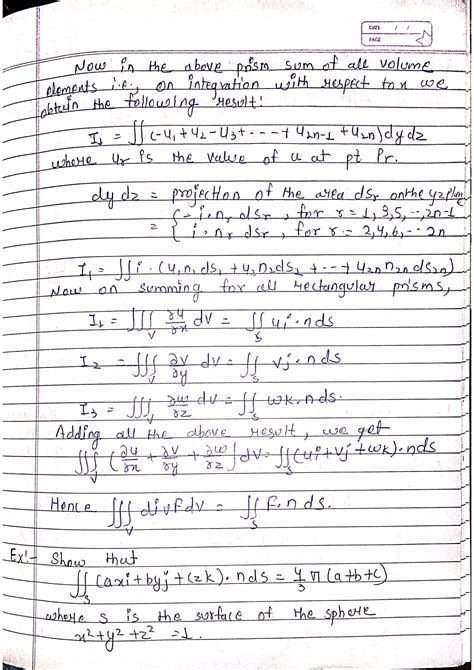 DATE / /
PAGE
Now in the above prism sum of all volume
elements i.e., on integration with respect to x we
obtain the following result!
I₁ = ∬(-u₁+u₂-u₃+----+u₂ₙ₋₁+u₂ₙ)dydz
where uᵣ is the value of u at pt Pᵣ.
dydz = projection of the area dsᵣ on the yz plane
= { -i·nᵣ dsᵣ, for r=1,3,5,--,2n-1
{ i·nᵣ dsᵣ, for r=2,4,6,--2n
I₁ = ∬i·(u₁n₁ds₁+u₂n₂ds₂+--+u₂ₙn₂ₙds₂ₙ)
Now on summing for all rectangular prisms,
I₁ = ∭_V ∂u/∂x dv = ∬_S ui·nds
I₂ = ∭_V ∂v/∂y dv = ∬_S vj·nds
I₃ = ∭_V ∂w/∂z dv = ∬_S wk·nds.
Adding all the above result, we get
∭_V (∂u/∂x + ∂v/∂y + ∂w/∂z)dv = ∬_S(ui+vj+wk)·nds
Hence ∭_V divFdv = ∬_S F·nds.
Ex:- Show that
∬_S (axi+byj+czk)·nds = 4/3 π(a+b+c)
where S is the surface of the sphere
x²+y²+z²=1.